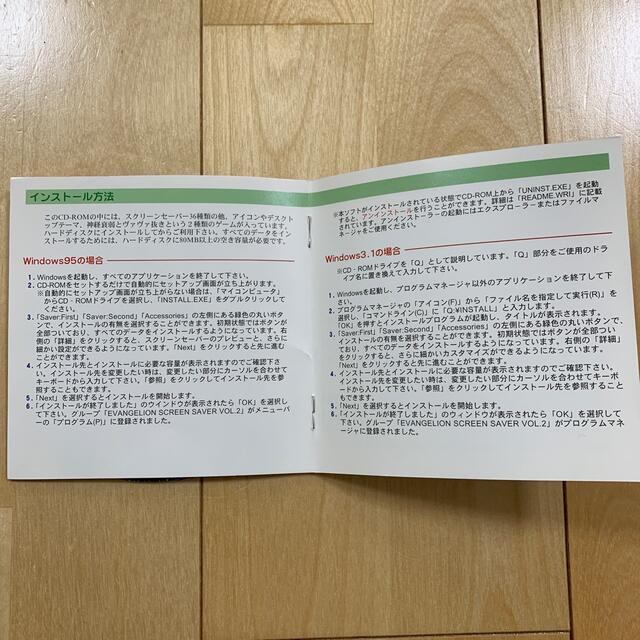 インストール方法
このCD-ROMの中には、スクリーンセーバー36種類の他、アイコンやデスクト
ップテーマ、神経衰弱とヴァヴァ抜きという2種類のゲームが入っています。
ハードディスクにインストールしてからご利用下さい。すべてのデータをイン
ストールするためには、ハードディスクに80MB以上の空き容量が必要です。
Windows95の場合
1. Windowsを起動し、すべてのアプリケーションを終了して下さい。
2. CD-ROMをセットするだけで自動的にセットアップ画面が立ち上がります。
※自動的にセットアップ画面が立ち上がらない場合は、「マイコンピュータ」
からCD・ROMドライブを選択し、「INSTALL.EXE」をダブルクリックして
ください。
3.「Saver:First」「Saver:Second」「Accessories」の左側にある緑色の丸いボタ
ンで、インストールの有無を選択することができます。初期状態ではボタンが
全部ついており、すべてのデータをインストールするようになっています。右
側の「詳細」をクリックすると、スクリーンセーバーのプレビューと、さらに
細かい設定ができるようになっています。「Next」をクリックすると先に進む
ことができます。
4. インストール先とインストールに必要な容量が表示されますのでご確認下さ
い。インストール先を変更したい時は、変更したい部分にカーソルを合わせて
キーボードから入力して下さい。「参照」をクリックしてインストール先を参
照することもできます。
5.「Next」を選択するとインストールを開始します。
6.「インストールが終了しました」のウインドウが表示されたら「OK」を選択し
て下さい。グループ「EVANGELION SCREEN SAVER VOL.2」がメニューバ
ーの「プログラム(P)」に登録されました。
※本ソフトがインストールされている状態でCD-ROM上から「UNINST.EXE」を起動
すると、アンインストールを行うことができます。詳細は「README.WRI」に記載
されています。アンインストーラーの起動にはエクスプローラーまたはファイルマ
ネージャをご使用ください。
Windows3.1の場合
※CD・ROMドライブを「Q」として説明しています。「Q」部分をご使用のドラ
イブ名に置き換えて入力して下さい。
1. Windowsを起動し、プログラムマネージャ以外のアプリケーションを終了して下
さい。
2. プログラムマネージャの「アイコン(F)」から「ファイル名を指定して実行(R)」を
選択し、「コマンドライン(C)」に「Q:¥INSTALL」と入力します。
「OK」を押すとインストールプログラムが起動し、タイトルが表示されます。
3.「Saver:First」「Saver:Second」「Accessories」の左側にある緑色の丸いボタンで、
インストールの有無を選択することができます。初期状態ではボタンが全部つい
ており、すべてのデータをインストールするようになっています。右側の「詳細」
をクリックすると、さらに細かいカスタマイズができるようになっています。
「Next」をクリックすると先に進むことができます。
4. インストール先とインストールに必要な容量が表示されますのでご確認下さい。
インストール先を変更したい時は、変更したい部分にカーソルを合わせてキーボ
ードから入力して下さい。「参照」をクリックしてインストール先を参照すること
もできます。
5.「Next」を選択するとインストールを開始します。
6.「インストールが終了しました」のウインドウが表示されたら「OK」を選択して
下さい。グループ「EVANGELION SCREEN SAVER VOL.2」がプログラムマネ
ージャに登録されました。